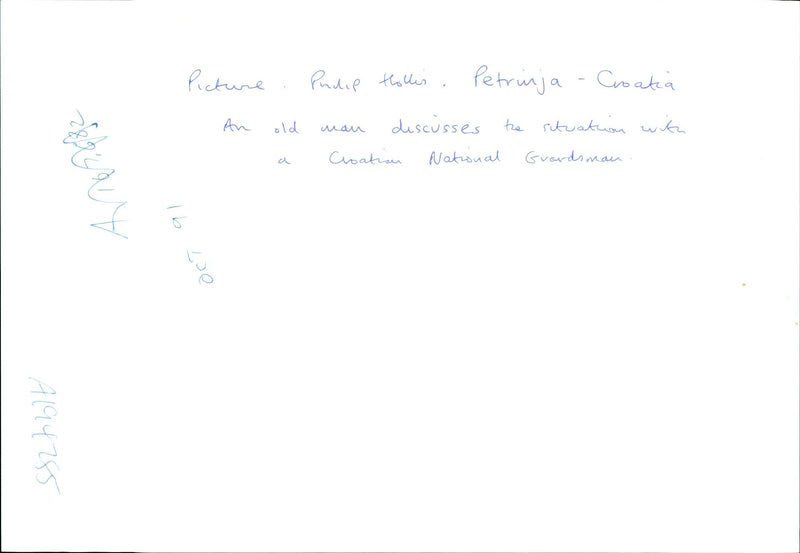 Picture. Philip Hollis. Petrinja - Croatia
An old man discusses the situation with
a Croatian National Guardsman.
OCT 91
A1194255